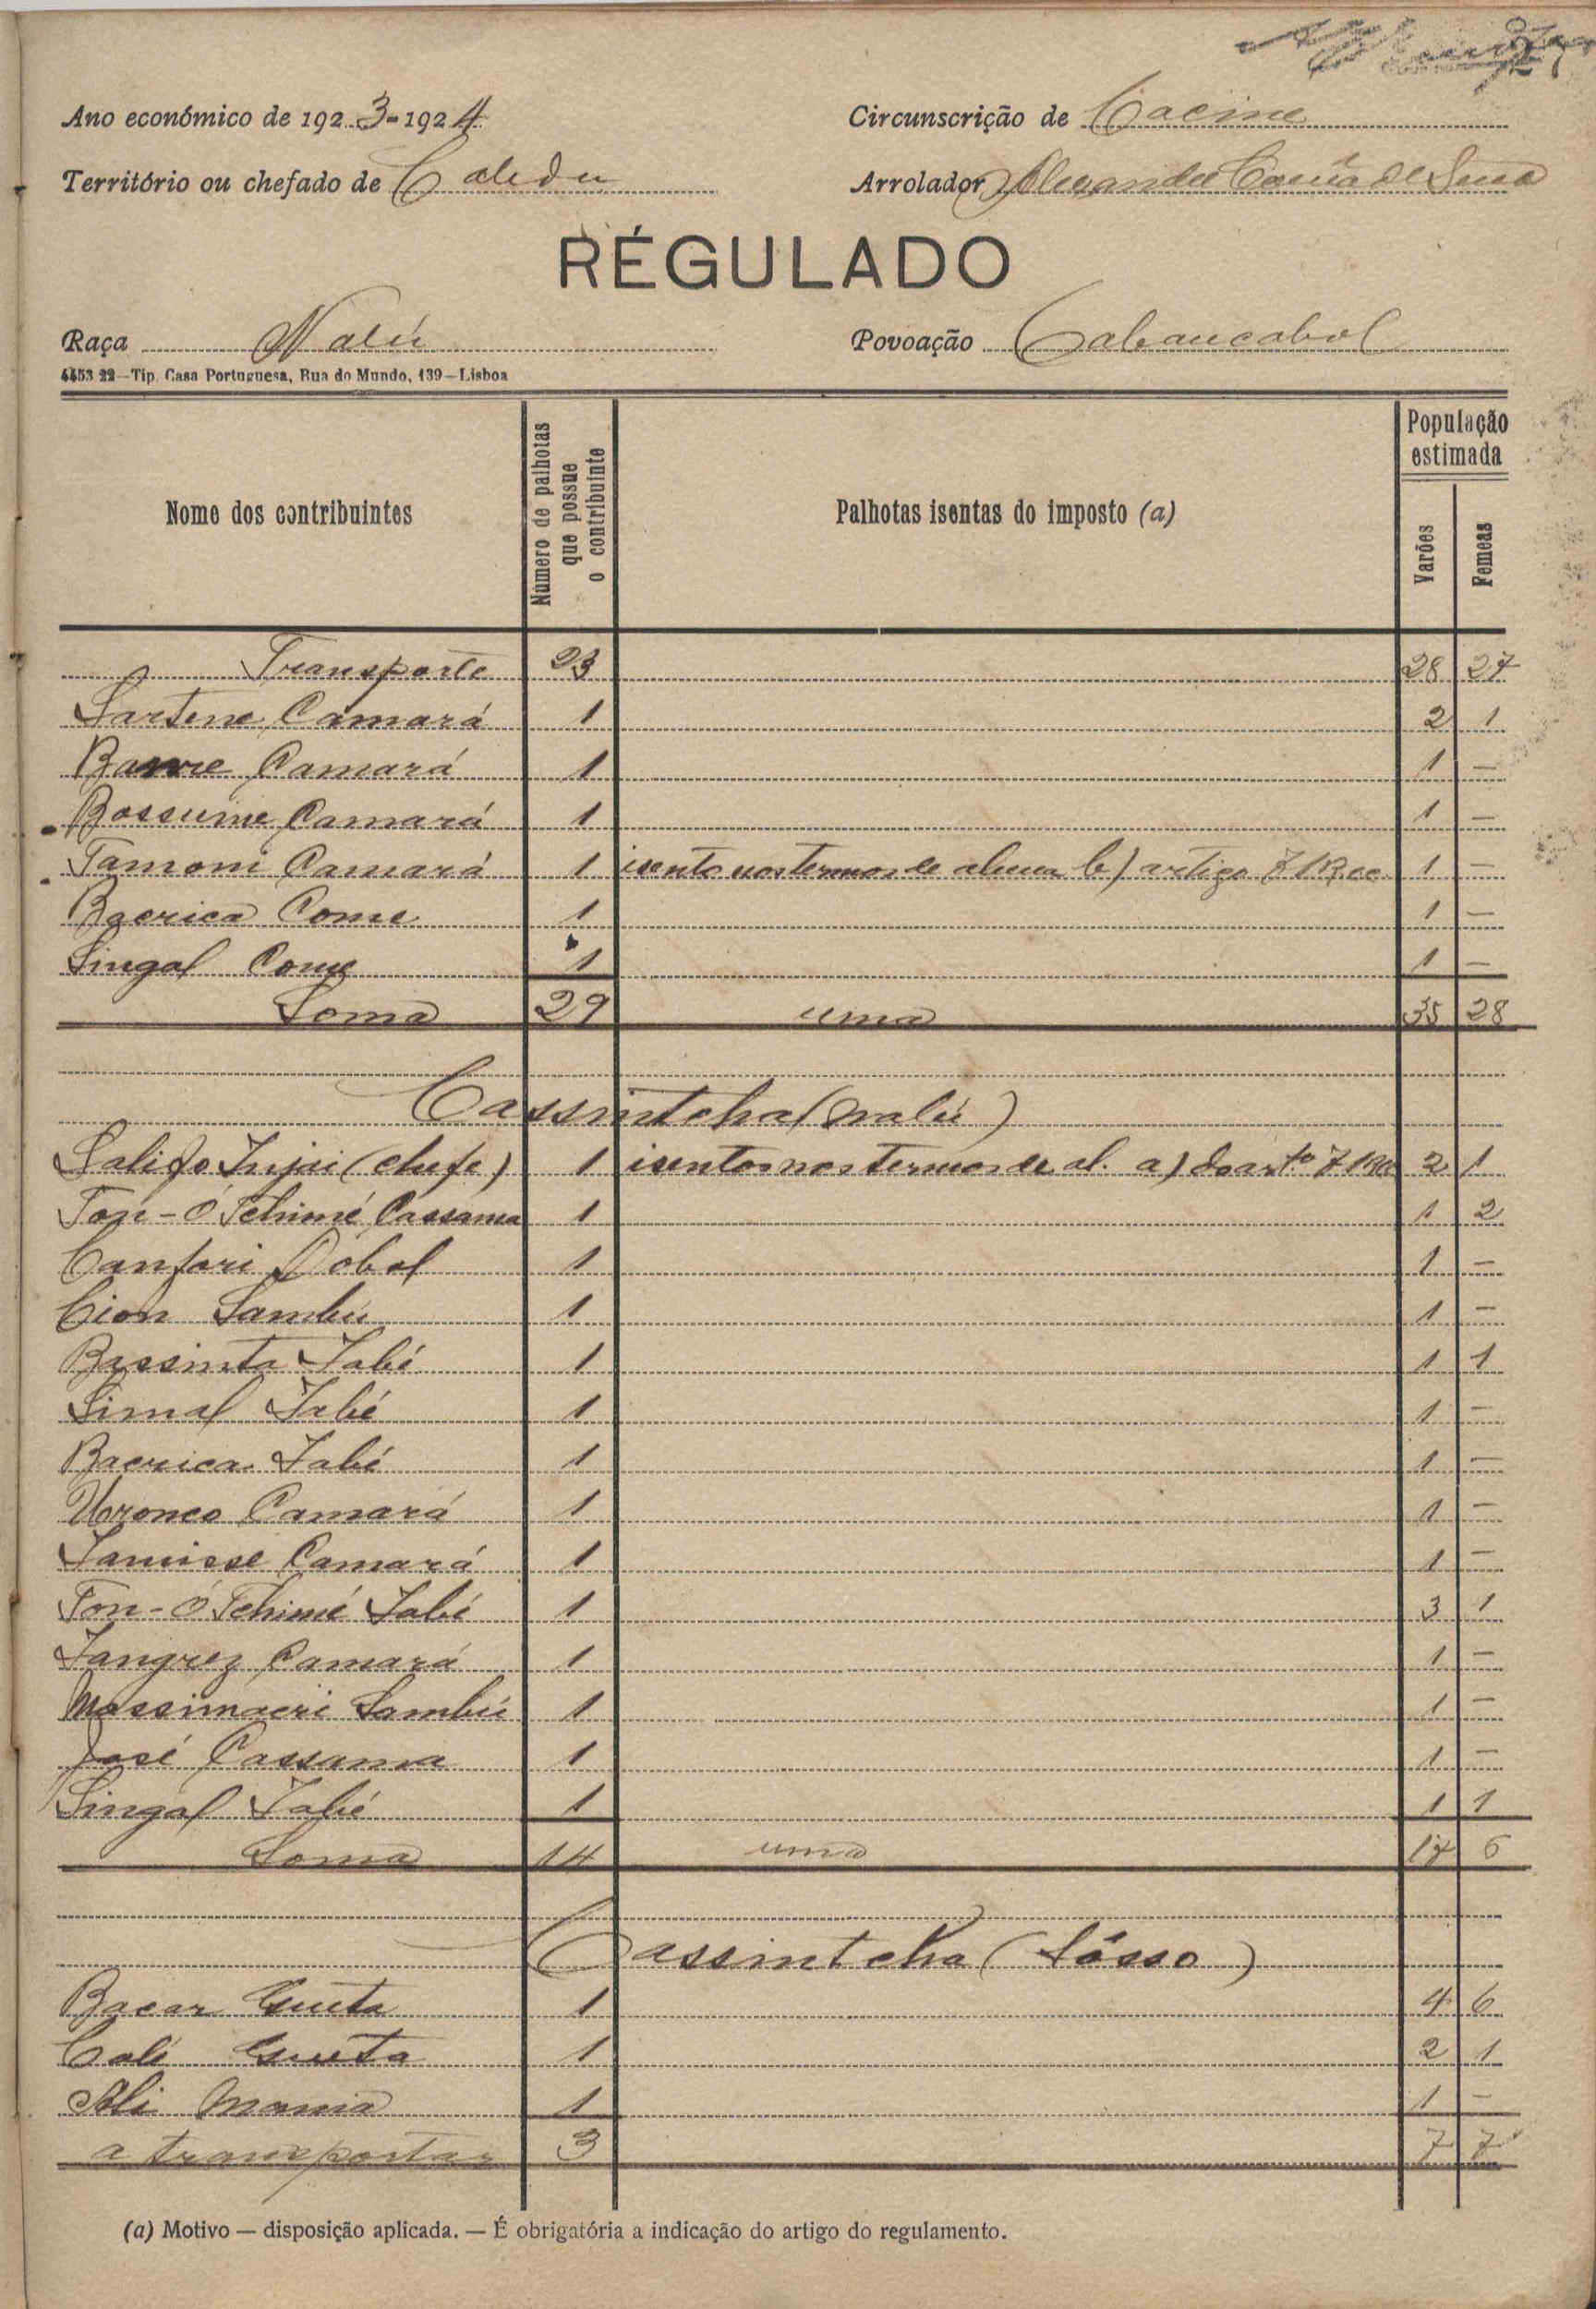 27
Ano económico de 1923-1924 Circunscrição de Cacine
Território ou chefado de Arrolador Alexandre de Sena
RÉGULADO
Raça Nalú Povoação Cabancabol
4453 22—Tip. Casa Portuguesa, Rua do Mundo, 139—Lisboa
Nome dos contribuintes Número de palhotas que possue o contribuinte Palhotas isentas do imposto (a) População estimada Varões Femeas
Transporte 23 28 27
Camará 1 2 1
Camará 1 1 —
Bossume Camará 1 1 —
Tamoni Camará 1 isento nos termos de alinea b) artigo 7 1 —
Come 1 1 —
Singal Come 1 1 —
Soma 29 uma 35 28
Cassintcha (nalú)
Salifo Injai (chefe) 1 isentos nos termos de al. a) do artº 7 2 1
Ton-ó Tchimé Cassama 1 1 2
Canfori Dobol 1 1 —
Cion Sambú 1 1 —
Bassinta Jabé 1 1 1
Simal Jabé 1 1 —
Jabé 1 1 —
Uronco Camará 1 1 —
Camará 1 1 —
Ton-ó Tchimé Jabé 1 3 1
Tangrez Camará 1 1 —
Sambú 1 1 —
José Cassama 1 1 —
Singal Jabé 1 1 1
Soma 14 uma 17 6
Cassintcha (Sósso)
Bacar Gueta 1 4 6
Calé Gueta 1 2 1
Ali Mania 1 1 —
a transportar 3 7 7
(a) Motivo — disposição aplicada. — É obrigatória a indicação do artigo do regulamento.